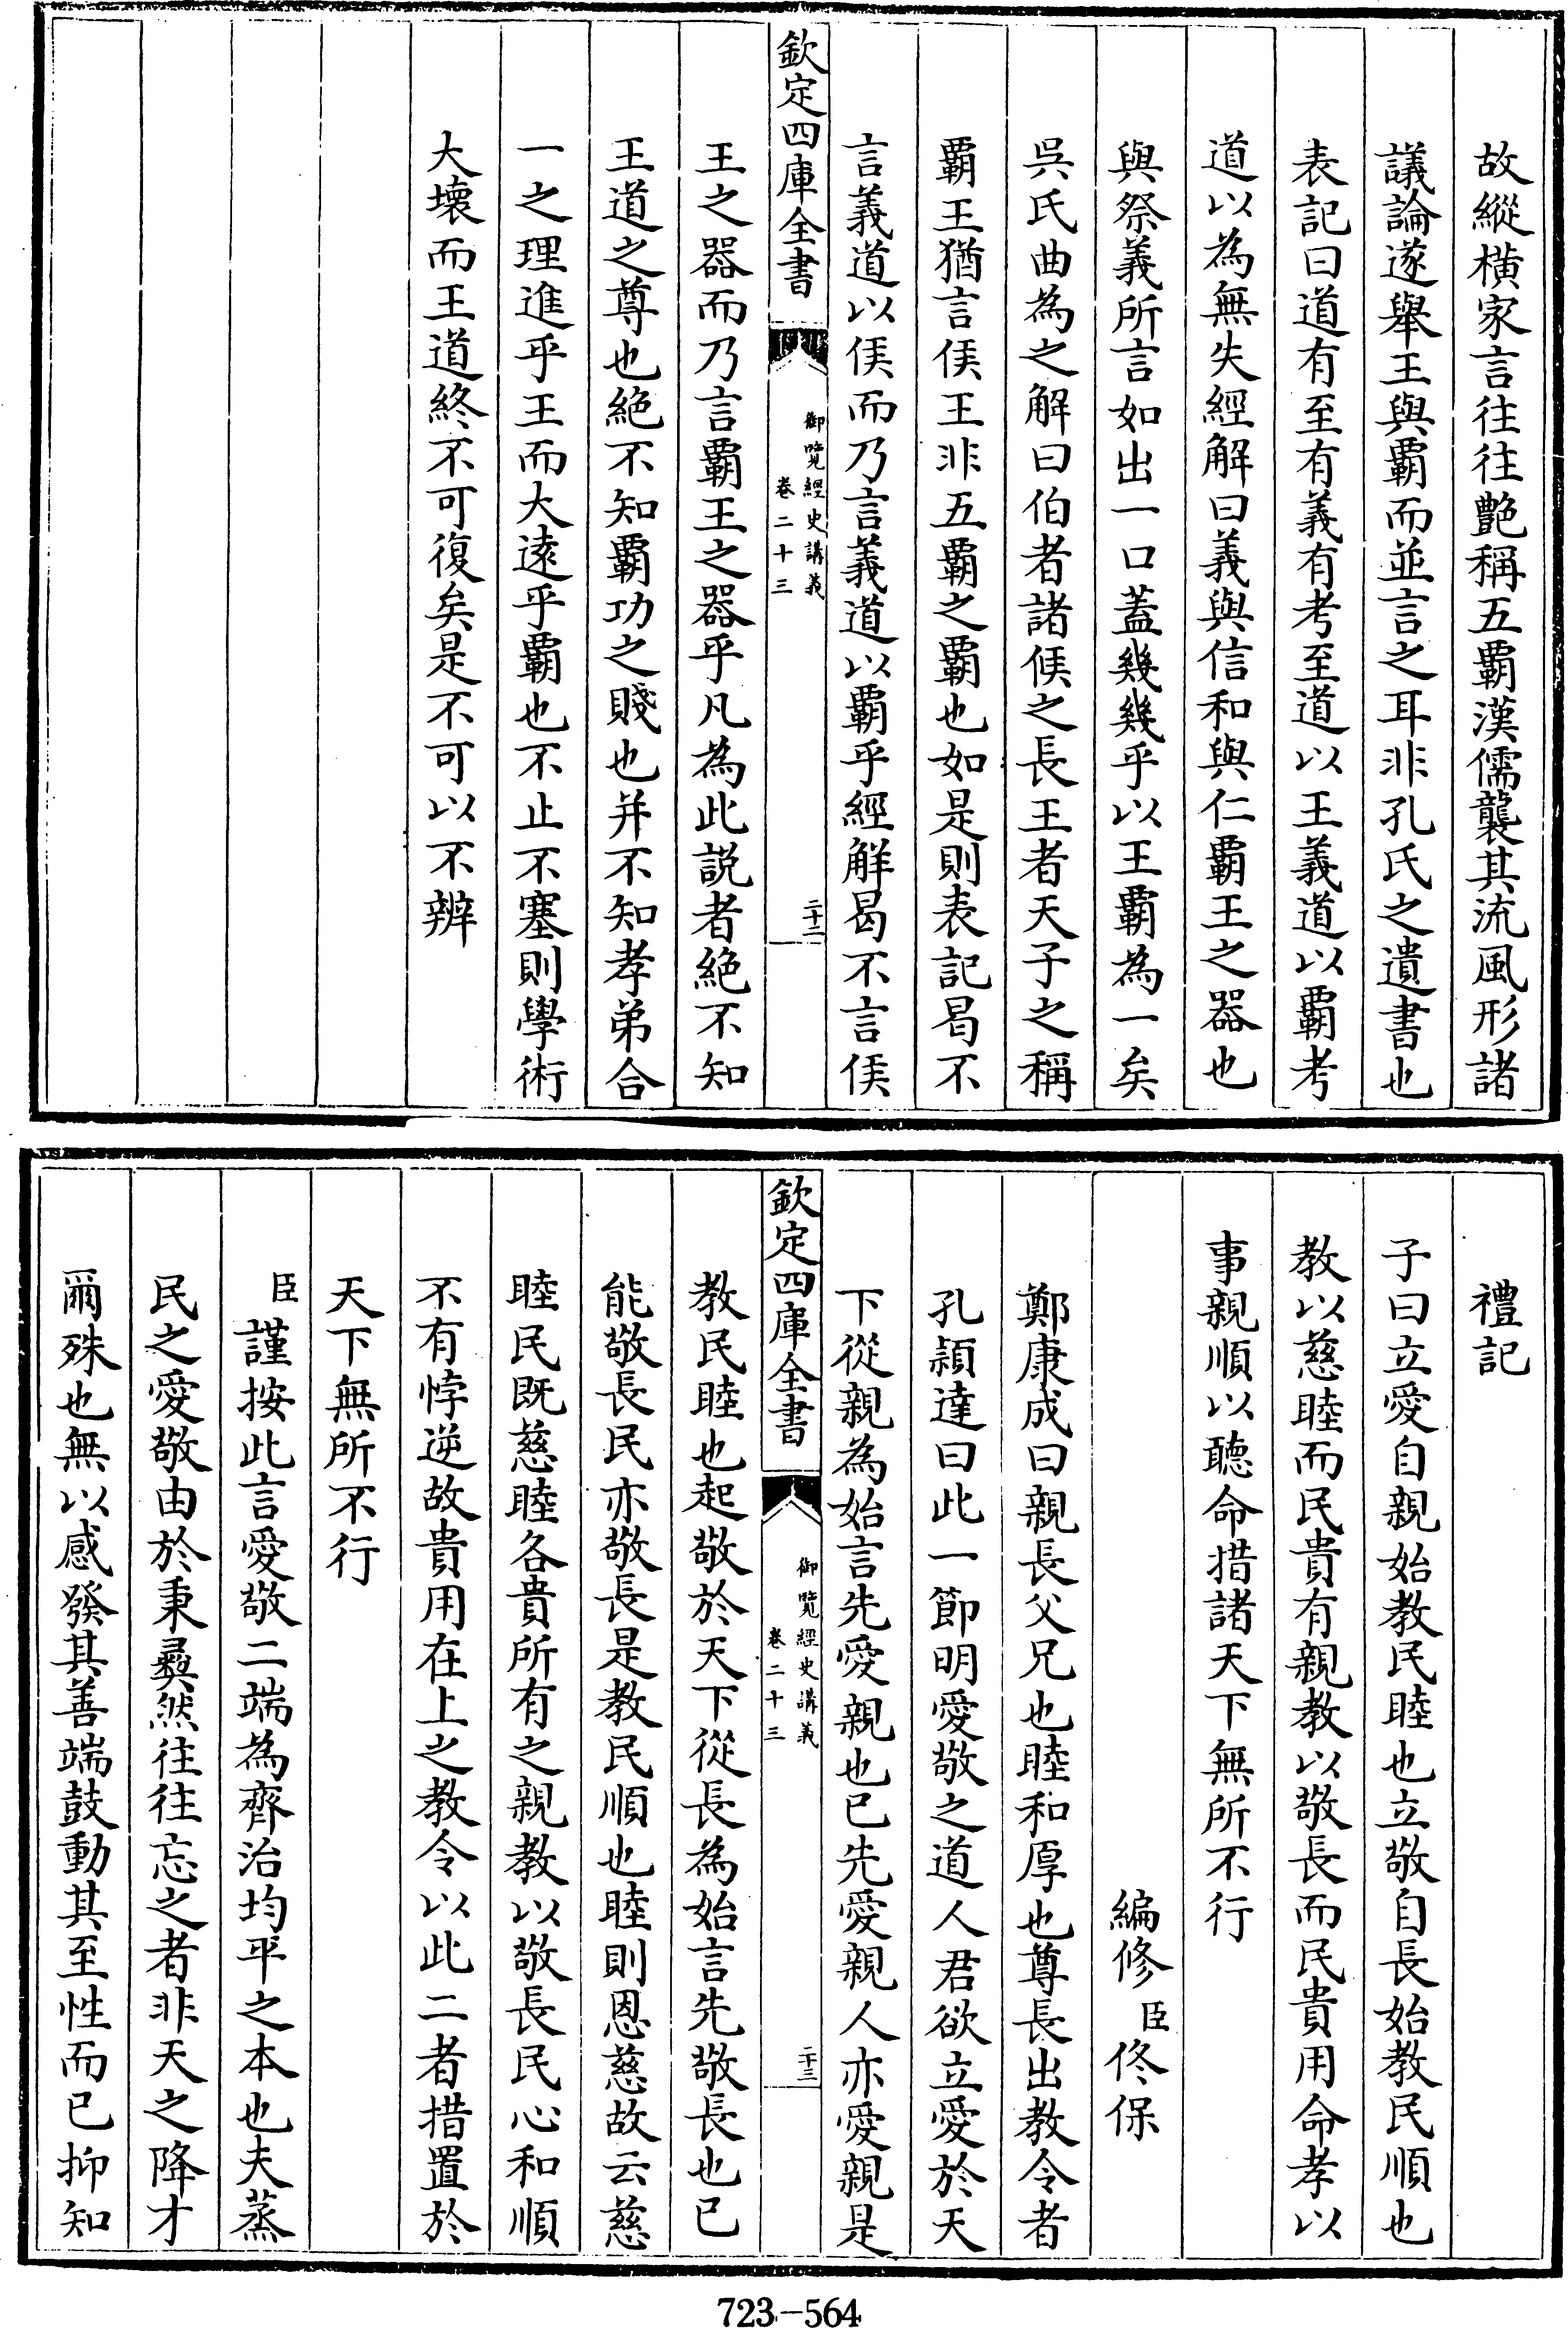 故縱横家言往往艷稱五覇漢儒襲其流風形諸
議論遂舉王與覇而並言之耳非孔氏之遺書也
表記曰道有至有義有考至道以王義道以覇考
道以為無失經解曰義與信和與仁覇王之器也
與祭義所言如出一口蓋幾幾乎以王覇為一矣
吳氏曲為之解曰伯者諸侯之長王者天子之稱
覇王猶言侯王非五覇之覇也如是則表記曷不
言義道以侯而乃言義道以覇乎經解曷不言侯
欽定四庫全書
御覽經史講義
卷二十三
二十二
王之器而乃言覇王之器乎凡為此説者絶不知
王道之尊也絶不知覇功之賤也并不知孝弟合
一之理進乎王而大逺乎覇也不止不塞則學術
大壊而王道終不可復矣是不可以不辨
禮記
子曰立愛自親始教民睦也立敬自長始教民順也
教以慈睦而民貴有親教以敬長而民貴用命孝以
事親順以聽命措諸天下無所不行
編修臣佟保
鄭康成曰親長父兄也睦和厚也尊長出教令者
孔頴達曰此一節明愛敬之道人君欲立愛於天
下從親為始言先愛親也已先愛親人亦愛親是
欽定四庫全書
御覽經史講義
卷二十三
二十三
教民睦也起敬於天下從長為始言先敬長也已
能敬長民亦敬長是教民順也睦則恩慈故云慈
睦民既慈睦各貴所有之親教以敬長民心和順
不有悖逆故貴用在上之教令以此二者措置於
天下無所不行
臣謹按此言愛敬二端為齊治均平之本也夫蒸
民之愛敬由於秉彞然往往忘之者非天之降才
爾殊也無以感發其善端鼓動其至性而已抑知
723-564